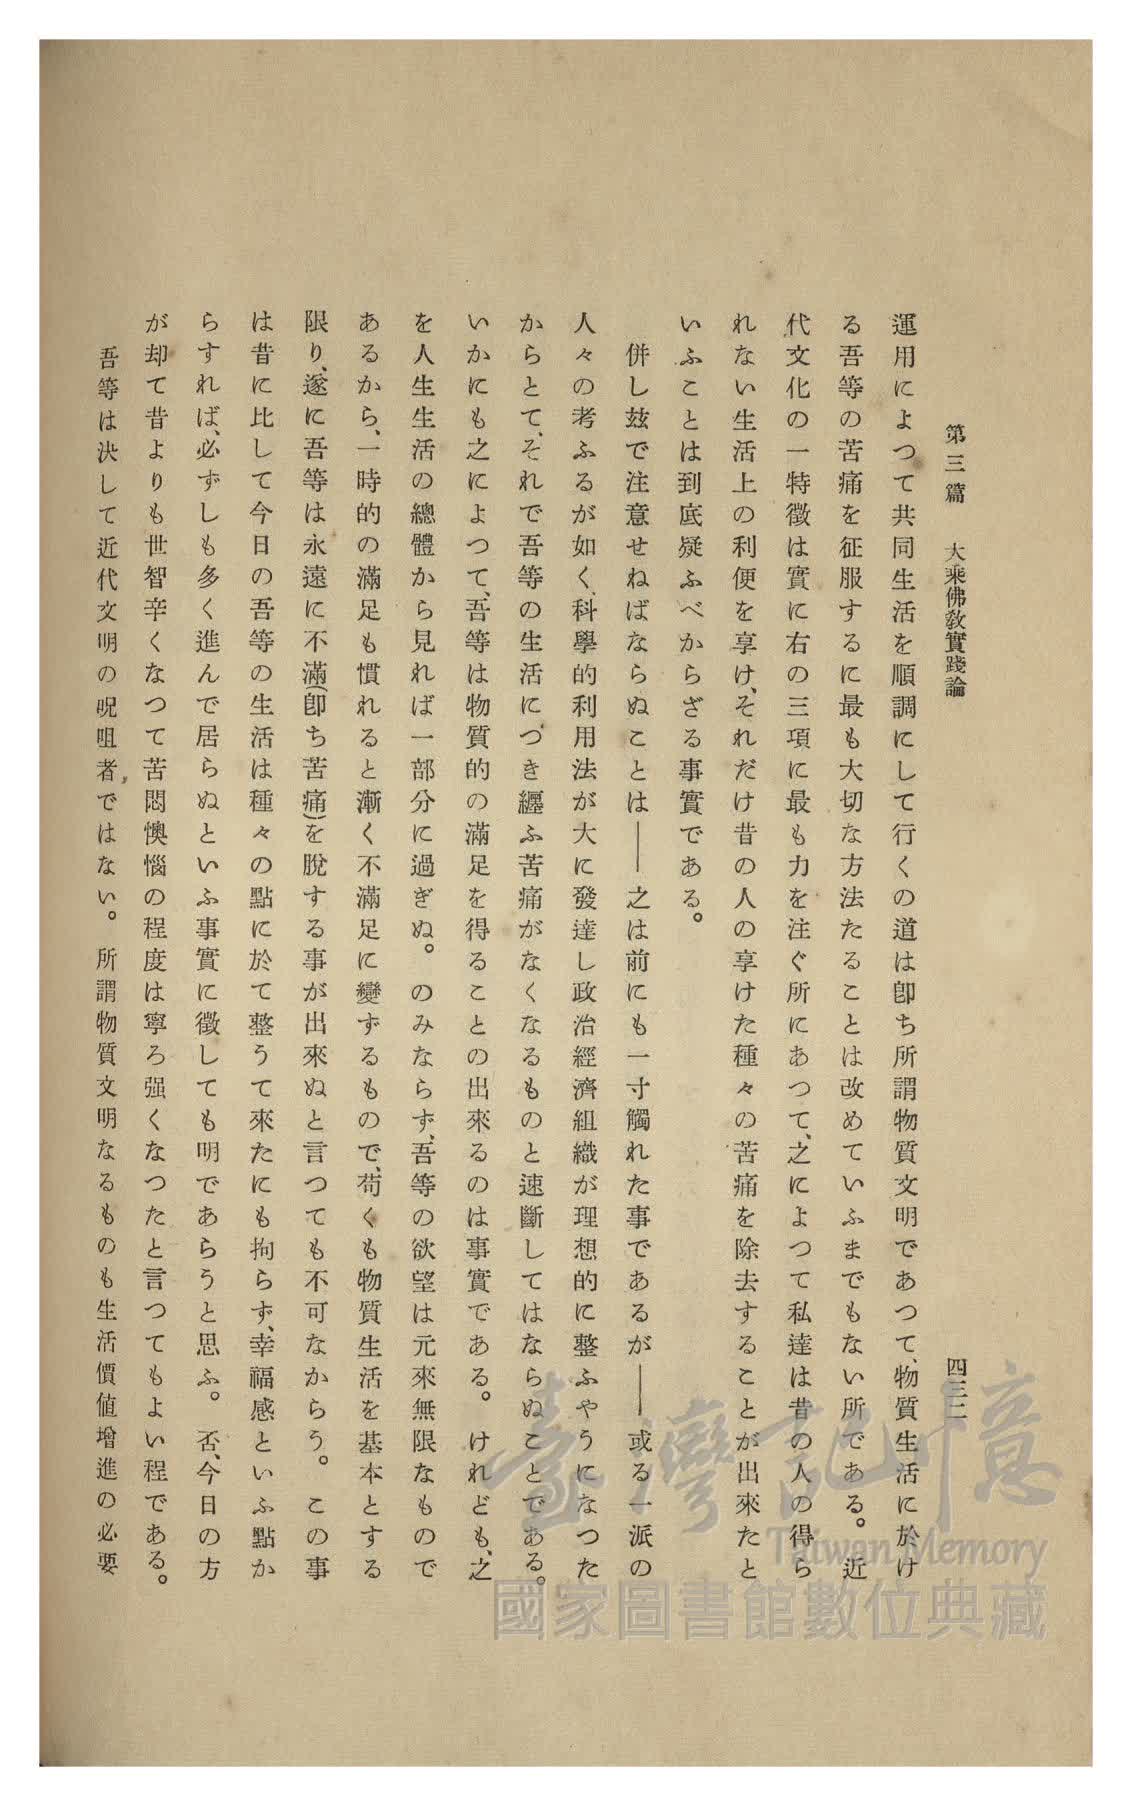 第三篇 大乘佛敎實踐論 四三二
運用によつて共同生活を順調にして行くの道は卽ち所謂物質文明であつて、物質生活に於け
る吾等の苦痛を征服するに最も大切な方法たることは改めていふまでもない所である。近
代文化の一特徵は實に右の三項に最も力を注ぐ所にあつて、之によつて私達は昔の人の得ら
れない生活上の利便を享け、それだけ昔の人の享けた種々の苦痛を除去することが出來たと
いふことは到底疑ふべからざる事實である。
併し玆で注意せねばならぬことは——之は前にも一寸觸れた事であるが——或る一派の
人々の考ふるが如く、科學的利用法が大に發達し政治經濟組織が理想的に整ふやうになつた
からとて、それで吾等の生活につき纏ふ苦痛がなくなるものと速斷してはならぬことである。
いかにも之によつて、吾等は物質的の滿足を得ることの出來るのは事實である。けれども、之
を人生生活の總體から見れば一部分に過ぎぬ。のみならず、吾等の欲望は元來無限なもので
あるから、一時的の滿足も慣れると漸く不滿足に變ずるもので、苟くも物質生活を基本とする
限り、遂に吾等は永遠に不滿(卽ち苦痛)を脫する事が出來ぬと言つても不可なからう。この事
は昔に比して今日の吾等の生活は種々の點に於て整うて來たにも拘らず、幸福感といふ點か
らすれば、必ずしも多く進んで居らぬといふ事實に徵しても明であらうと思ふ。否、今日の方
が却て昔よりも世智辛くなつて苦悶懊惱の程度は寧ろ强くなつたと言つてもよい程である。
吾等は決して近代文明の呪咀者ではない。所謂物質文明なるものも生活價値增進の必要
臺灣記憶
Taiwan Memory
國家圖書館數位典藏